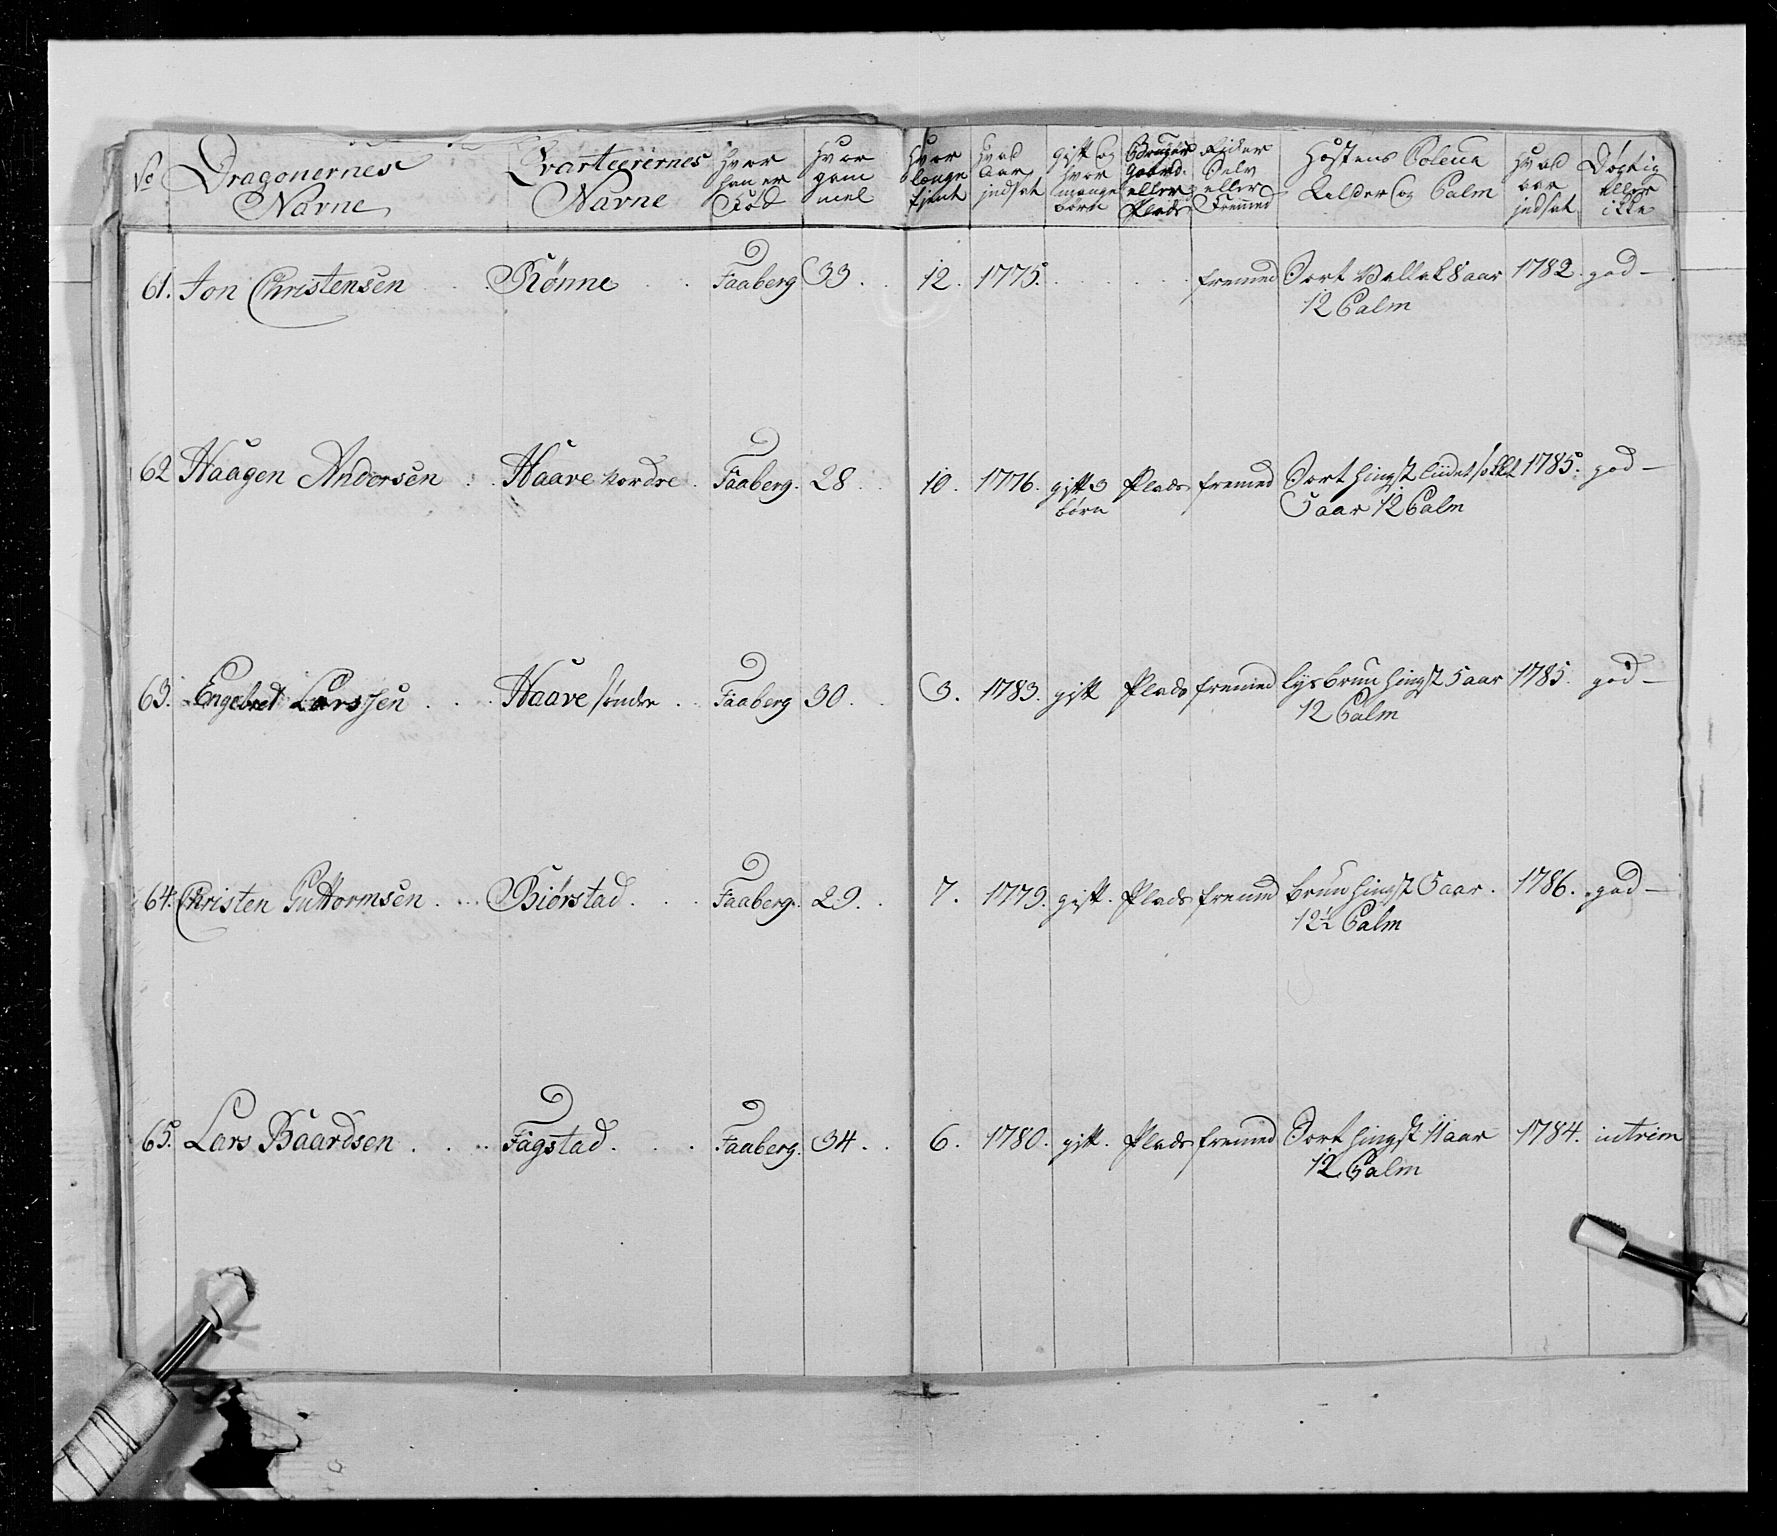 No Dragonernes Navne
Qvarteerernes Navne
Hvor han er Fød
Hvor gam mel
Hvor længe tient
Hvad Aar indsat
gift og hvor mange børn
Bruger Gaard eller Plads
Rider Selv eller Fremmed
Hæstens Coleur Alder og Palm
Hvad aar indsat
Døgtig eller ikke
61. Jon Christensen Rønne Faaberg 33 12. 1775. fremed Sort Vallak 8 aar 1782. god
12 Palm
62 Haagen Andersen Haave nordre Faaberg. 28 10. 1776. gift 3 Plads fremed Sort hingst 1785. god
børn 5 aar 12 Palm
63. Engebret Larssen Haave søndre Faaberg 30. 3. 1783. gift Plads fremed lysbrun hingst 5 aar 1785. god
12 Palm
64. Christen Guttormsen Biørstad. Faaberg. 29. 7. 1779. gift. Plads fremed brun hingst 5 aar. 1786. god
12½ Palm
65. Lars Baardsen Fagstad. Faaberg. 34. 6. 1780. gift. Plads fremed Sort hingst 11 aar 1784. intrim
12 Palm